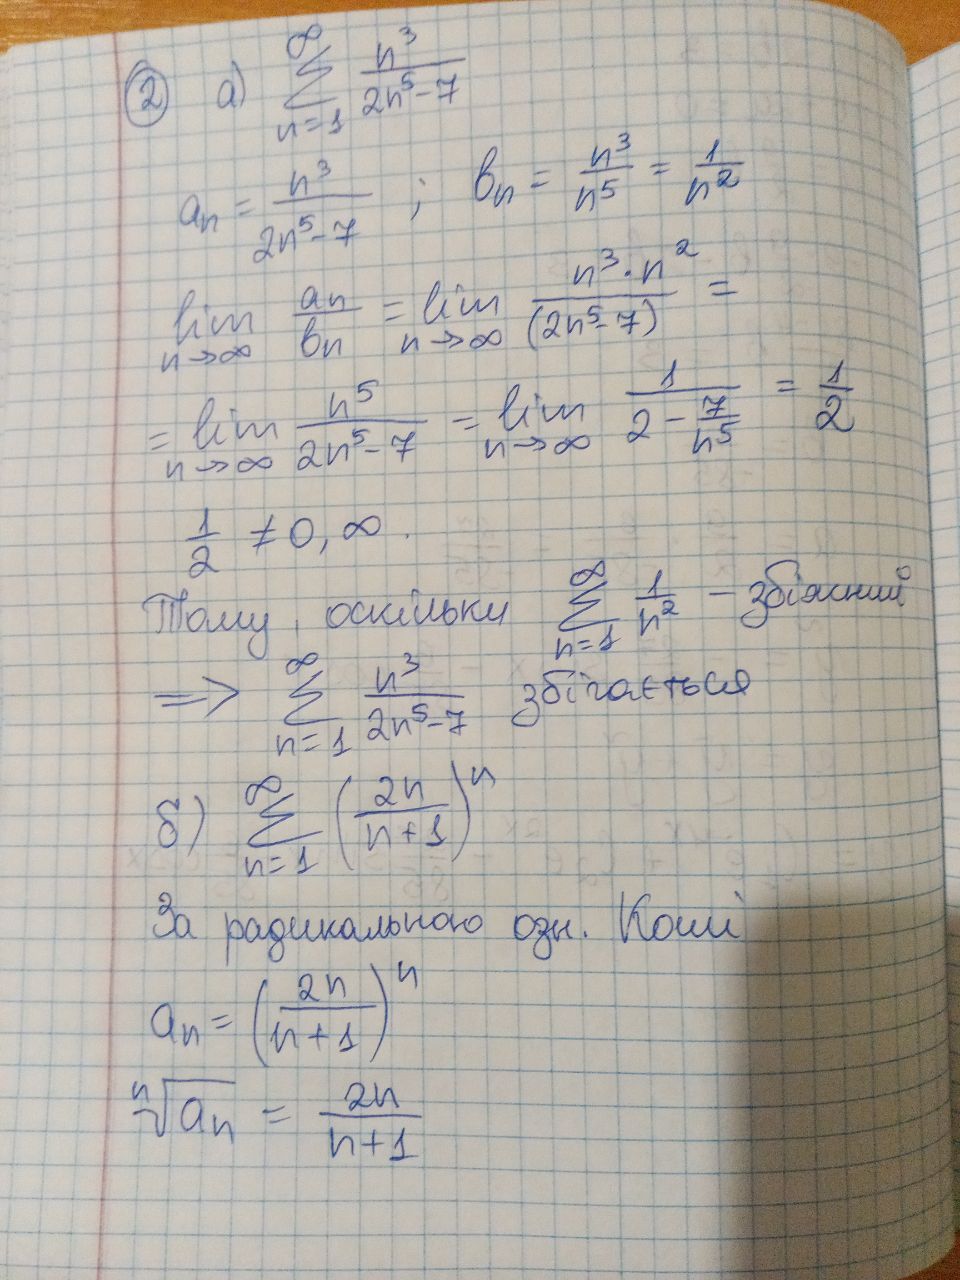 ② а) ∞ ∑ n=1 n³/(2n⁵-7)
aₙ = n³/(2n⁵-7) ; bₙ = n³/n⁵ = 1/n²
lim n→∞ aₙ/bₙ = lim n→∞ n³·n²/(2n⁵-7) =
= lim n→∞ n⁵/(2n⁵-7) = lim n→∞ 1/(2 - 7/n⁵) = 1/2
1/2 ≠ 0, ∞.
Тому, оскільки ∞ ∑ n=1 1/n² - збіжний
=> ∞ ∑ n=1 n³/(2n⁵-7) збігається
б) ∞ ∑ n=1 (2n/(n+1))ⁿ
За радикальною озн. Коші
aₙ = (2n/(n+1))ⁿ
ⁿ√aₙ = 2n/(n+1)